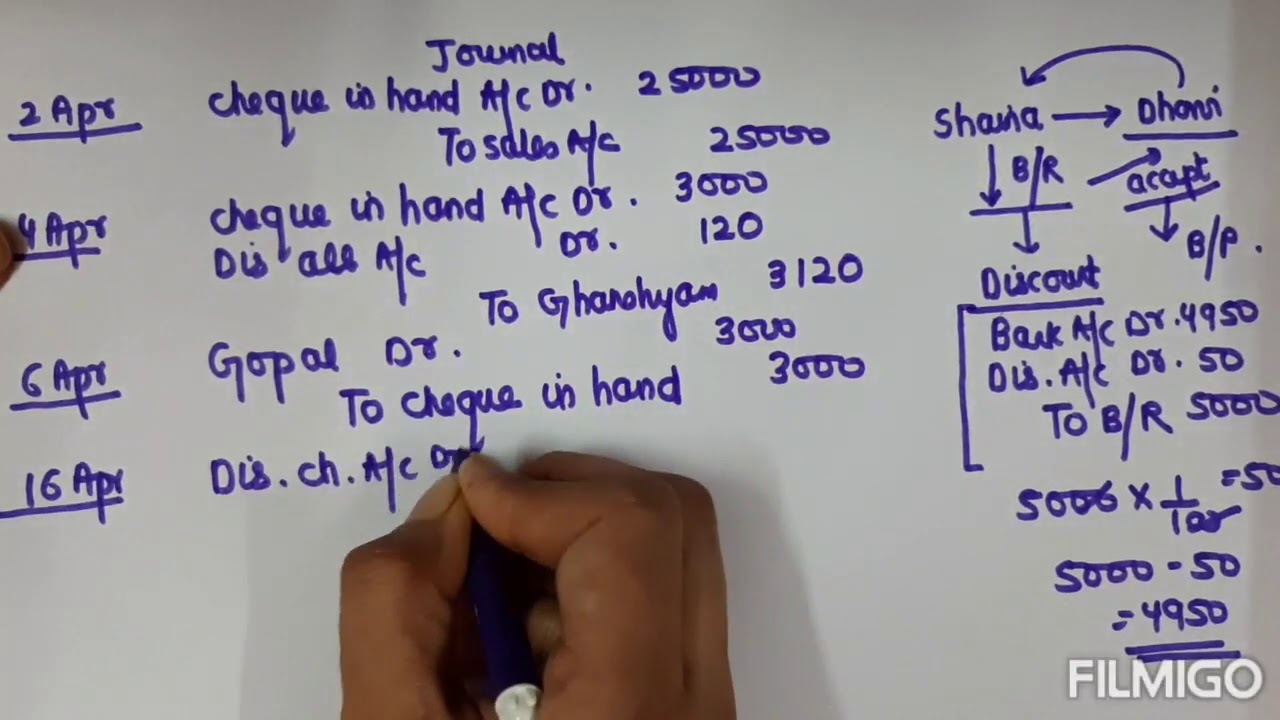 Journal
2 Apr cheque in hand A/c Dr. 25000
To sales A/c 25000
4 Apr cheque in hand A/c Dr. 3000
Dis all A/c Dr. 120
To Ghanshyam 3120
6 Apr Gopal Dr. 3000
To cheque in hand 3000
16 Apr Dis. ch. A/c Dr
Dhani
B/R accept
B/P.
Discount
Bank A/c Dr. 4950
Dis. A/c Dr. 50
To B/R 5000
5000 × 1/100 = 50
5000 - 50
= 4950
FILMIGO